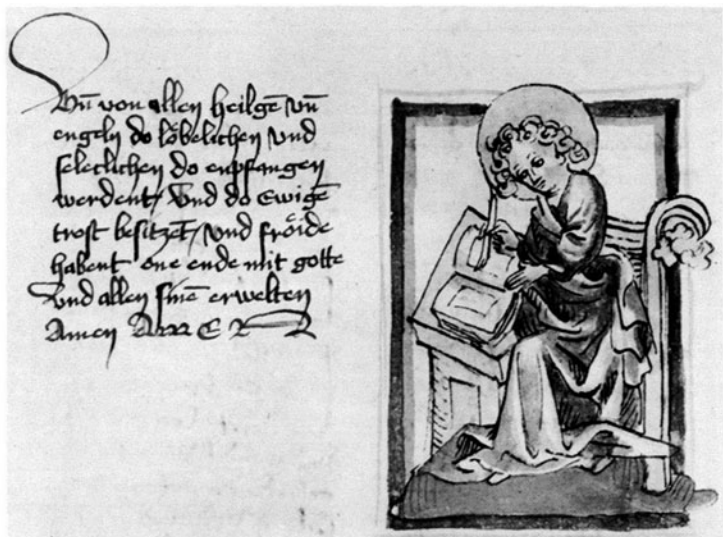 Vñ von allen heilgē vñ
engeln do loͤbelichen vnd
seleclichen do enpfangen
werdent / Vnd do Ewigē
trost besitzēt / vnd froͤide
habent one ende mit gotte
Vnd allen sinē erwelten
Amen AMEN